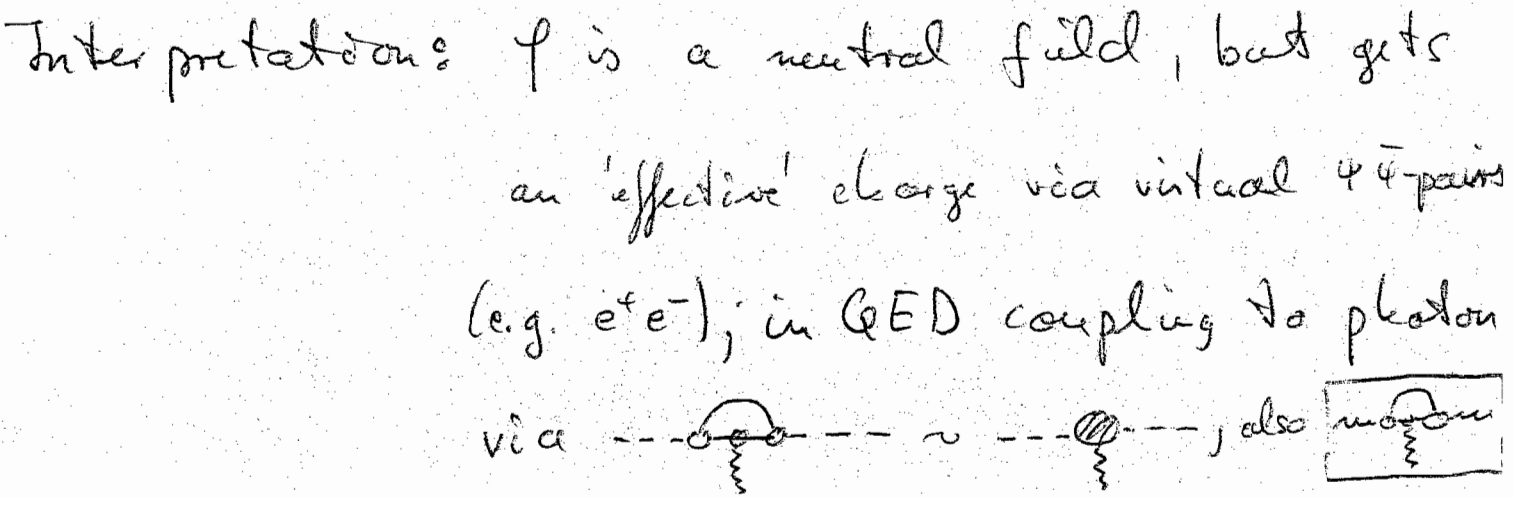 Interpretation: φ is a neutral field, but gets
an 'effective' charge via virtual ψψ̄-pairs
(e.g. e⁺e⁻); in QED coupling to photon
via ~ , also